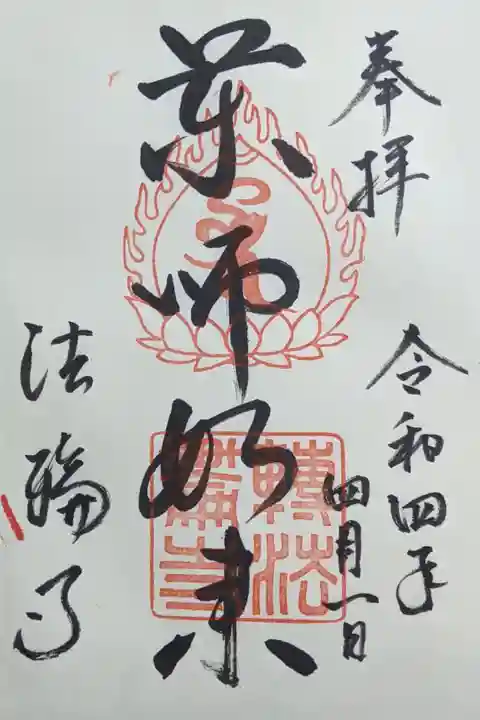 奉拝
令和四年
四月一日
薬師如来
法輪寺
轉法